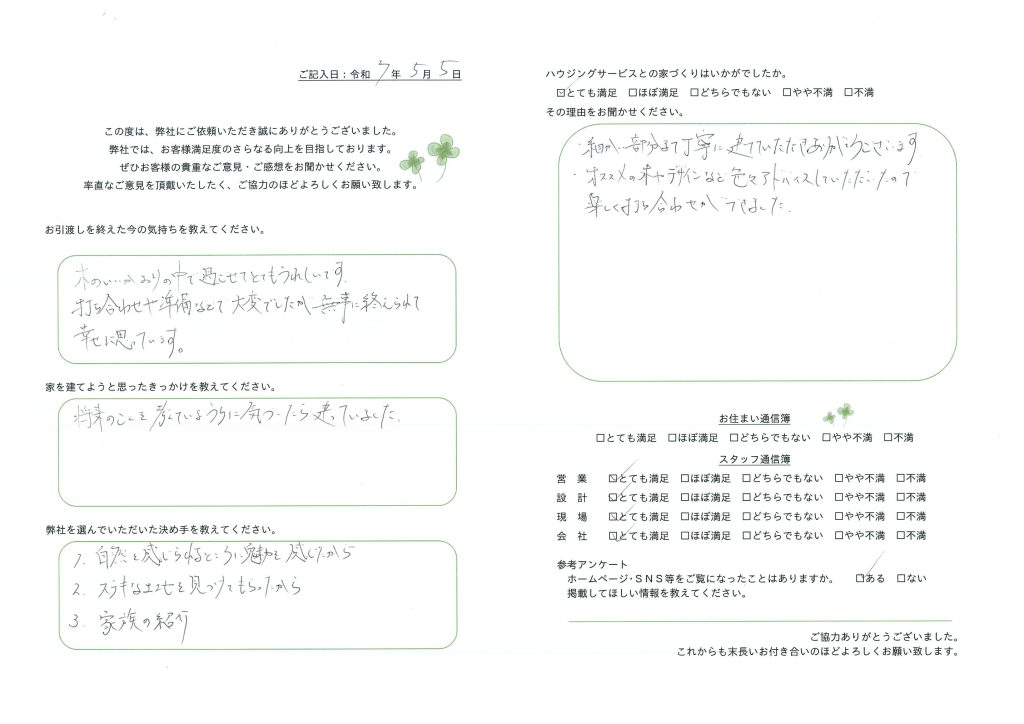 ご記入日：令和 7 年 5 月 5 日
この度は、弊社にご依頼いただき誠にありがとうございました。
弊社では、お客様満足度のさらなる向上を目指しております。
ぜひお客様の貴重なご意見・ご感想をお聞かせください。
率直なご意見を頂戴いたしたく、ご協力のほどよろしくお願い致します。
お引渡しを終えた今の気持ちを教えてください。
木のいいかおりの中で過ごせてとてもうれしいです。
打ち合わせや準備などで大変でしたが無事に終えられて
幸せに思っています。
家を建てようと思ったきっかけを教えてください。
将来のことを考えているうちに気づいたら建っていました。
弊社を選んでいただいた決め手を教えてください。
1. 自然を感じられるところに魅力を感じたから
2. ステキな土地を見つけてもらったから
3. 家族の紹介
ハウジングサービスとの家づくりはいかがでしたか。
☑とても満足 □ほぼ満足 □どちらでもない □やや不満 □不満
その理由をお聞かせください。
・細かい部分まで丁寧に建てていただきありがとうございます
・オススメの木やデザインなど色々アドバイスしていただいたので
楽しく打ち合わせができました。
お住まい通信簿
□とても満足 □ほぼ満足 □どちらでもない □やや不満 □不満
スタッフ通信簿
営 業 ☑とても満足 □ほぼ満足 □どちらでもない □やや不満 □不満
設 計 ☑とても満足 □ほぼ満足 □どちらでもない □やや不満 □不満
現 場 ☑とても満足 □ほぼ満足 □どちらでもない □やや不満 □不満
会 社 ☑とても満足 □ほぼ満足 □どちらでもない □やや不満 □不満
参考アンケート
ホームページ・SNS等をご覧になったことはありますか。 ☑ある □ない
掲載してほしい情報を教えてください。
ご協力ありがとうございました。
これからも末長いお付き合いのほどよろしくお願い致します。